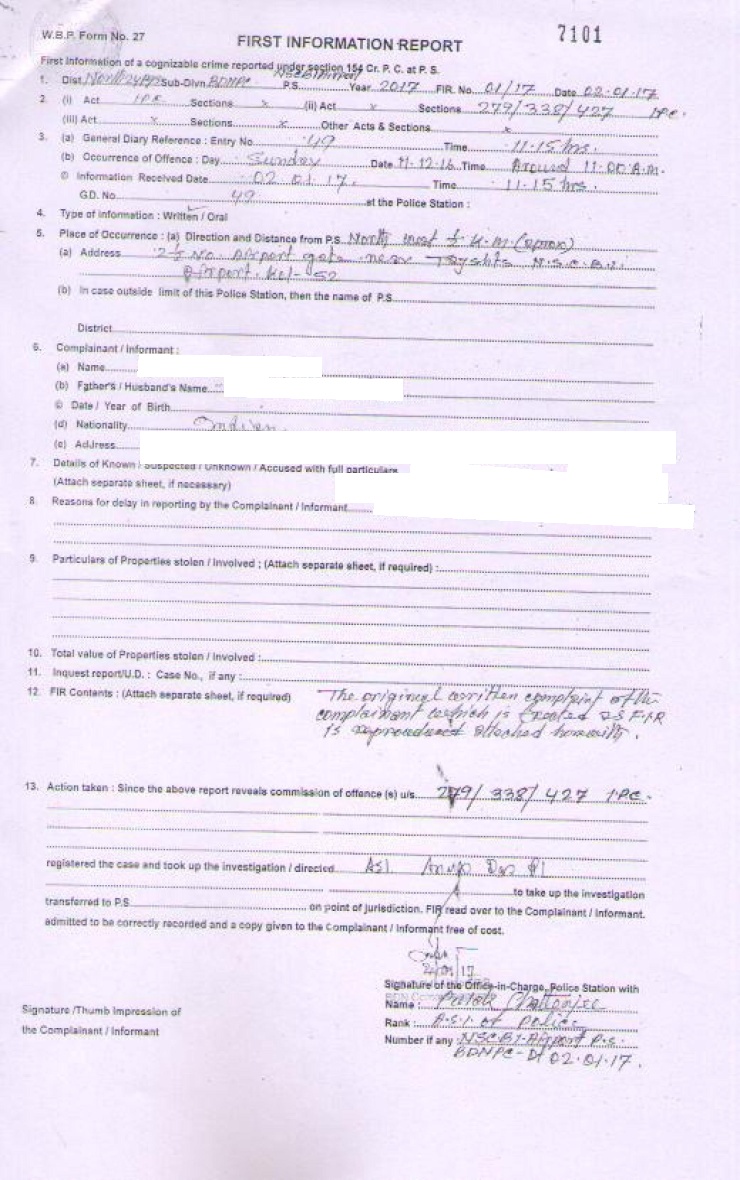 W.B.P. Form No. 27
7101
FIRST INFORMATION REPORT
First Information of a cognizable crime reported under section 154 Cr. P. C. at P. S.
1. Dist. North 24 Pgs Sub-Divn. BDNPC P.S. NSCBI Airport Year 2017 FIR. No. 01/17 Date 02.01.17
2. (i) Act IPC Sections x (ii) Act x Sections 279/338/427 IPC.
(iii) Act x Sections x Other Acts & Sections x
3. (a) General Diary Reference : Entry No. 49 Time 11.15 hrs.
(b) Occurrence of Offence : Day Sunday Date 11.12.16 Time Around 11.00 A.M.
© Information Received Date 02.01.17. Time 11.15 hrs.
G.D. No. 49 at the Police Station :
4. Type of information : Written / Oral
5. Place of Occurrence : (a) Direction and Distance from P.S. North west ½ K.M (
(a) Address 2½ No. Airport gate near N.S.C.B.I
Airport. Kol-52
(b) In case outside limit of this Police Station, then the name of P.S.
District
6. Complainant / Informant :
(a) Name
(b) Father's / Husband's Name
© Date / Year of Birth
(d) Nationality Indian
(c) Address
7. Details of Known / Suspected / Unknown / Accused with full particulars
(Attach separate sheet, if necessary)
8. Reasons for delay in reporting by the Complainant / Informant
9. Particulars of Properties stolen / Involved : (Attach separate sheet, if required) :
10. Total value of Properties stolen / Involved :
11. Inquest report/U.D. : Case No., if any :
12. FIR Contents : (Attach separate sheet, if required) The original written complaint of the
complainant which is treated as FIR
is attached
13. Action taken : Since the above report reveals commission of offence (s) u/s. 279/338/427 IPC.
registered the case and took up the investigation / directed ASI Das
to take up the investigation
transferred to P.S. on point of jurisdiction. FIR read over to the Complainant / Informant.
admitted to be correctly recorded and a copy given to the Complainant / Informant free of cost.
Signature of the Office-in-Charge, Police Station with
Name : Chatterjee
Rank : A.S.I. of Police
Number if any : NSCBI-Airport P.S.
BDNPC 02.01.17.
Signature /Thumb Impression of
the Complainant / Informant